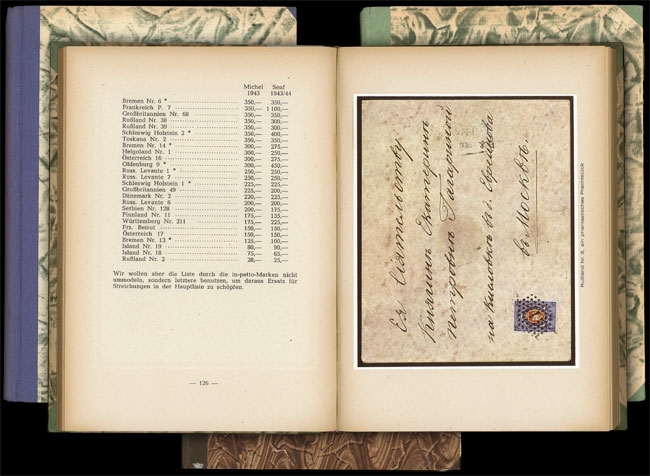 Michel Senf
1943 1943/44
Bremen Nr. 6 * 350,— 350,—
Frankreich P. 7 350,— 1 100,—
Großbritannien Nr. 68 350,—
Rußland Nr. 38 350,— 300,—
Rußland Nr. 39 350,— 300,—
Schleswig Holstein 2 * 350,— 400,—
Toskana Nr. 2 350,—
Bremen Nr. 14 * 300,— 275,—
Helgoland Nr. 1 300,—
Österreich 16 300,— 275,—
Oldenburg 9 * 300,— 450,—
Russ. Levante 1 * 250,— 250,—
Russ. Levante 7 250,— 250,—
Schleswig Holstein 1 * 225,— 225,—
Großbritannien 49 225,— 200,—
Dänemark Nr. 2 220,— 225,—
Russ. Levante 6 200,— 200,—
Serbien 128 200,— 175,—
Finnland Nr. 11 175,— 135,—
Württemberg Nr. 211 175,—
Frz. Beirut 150,— 150,—
Österreich 17 150,— 150,—
Bremen Nr. 13 * 125,— 100,—
Island Nr. 19 80,— 90,—
Island Nr. 18 75,— 65,—
Rußland Nr. 2 28,— 25,—
Wir wollen aber die Liste durch die in-petto-Marken nicht
ummodeln, sondern letztere benutzen, um daraus Ersatz für
Streichungen in der Hauptliste zu schöpfen.
— 126 —
Ея Сіятельству
Княгинѣ Екатеринѣ
Петровнѣ Гагариной
на Кисловкѣ
въ Москвѣ.
Rußland Nr. 8, ein phantastisches Prachtstück